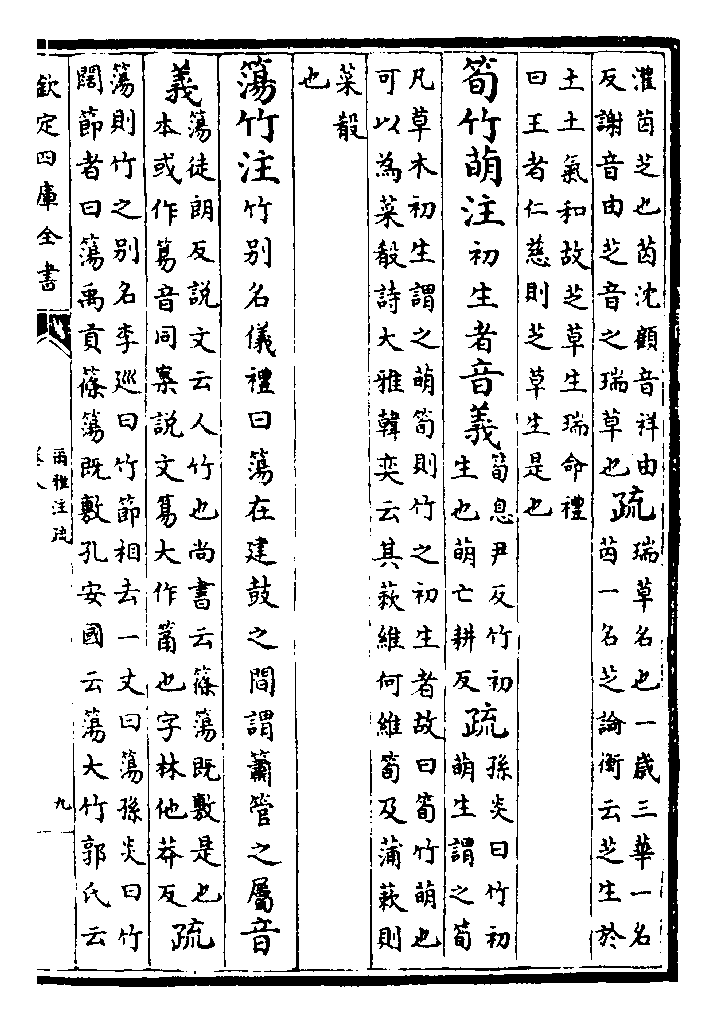 灌苬芝也苬沈顧音祥由
反謝音由芝音之瑞草也
疏
瑞草名也一歲三華一名
苬一名芝論衡云芝生於
土土氣和故芝草生瑞命禮
曰王者仁慈則芝草生是也
筍竹萌注初生者音義
筍息尹反竹初
生也萌亡耕反
疏
孫炎曰竹初
萌生謂之筍
凡草木初生謂之萌筍則竹之初生者故曰筍竹萌也
可以為菜殽詩大雅韓奕云其蔌維何維筍及蒲蔌則
菜殽
也
簜竹注竹别名儀禮曰簜在建鼓之間謂簫管之屬音
義
簜徒朗反説文云人竹也尚書云篠簜既敷是也
本或作䈪音同案説文䈪大作筩也字林他莽反
疏
簜則竹之别名李巡曰竹節相去一丈曰簜孫炎曰竹
闊節者曰簜禹貢篠簜既敷孔安國云簜大竹郭氏云
欽定四庫全書
爾雅注疏
卷八
九